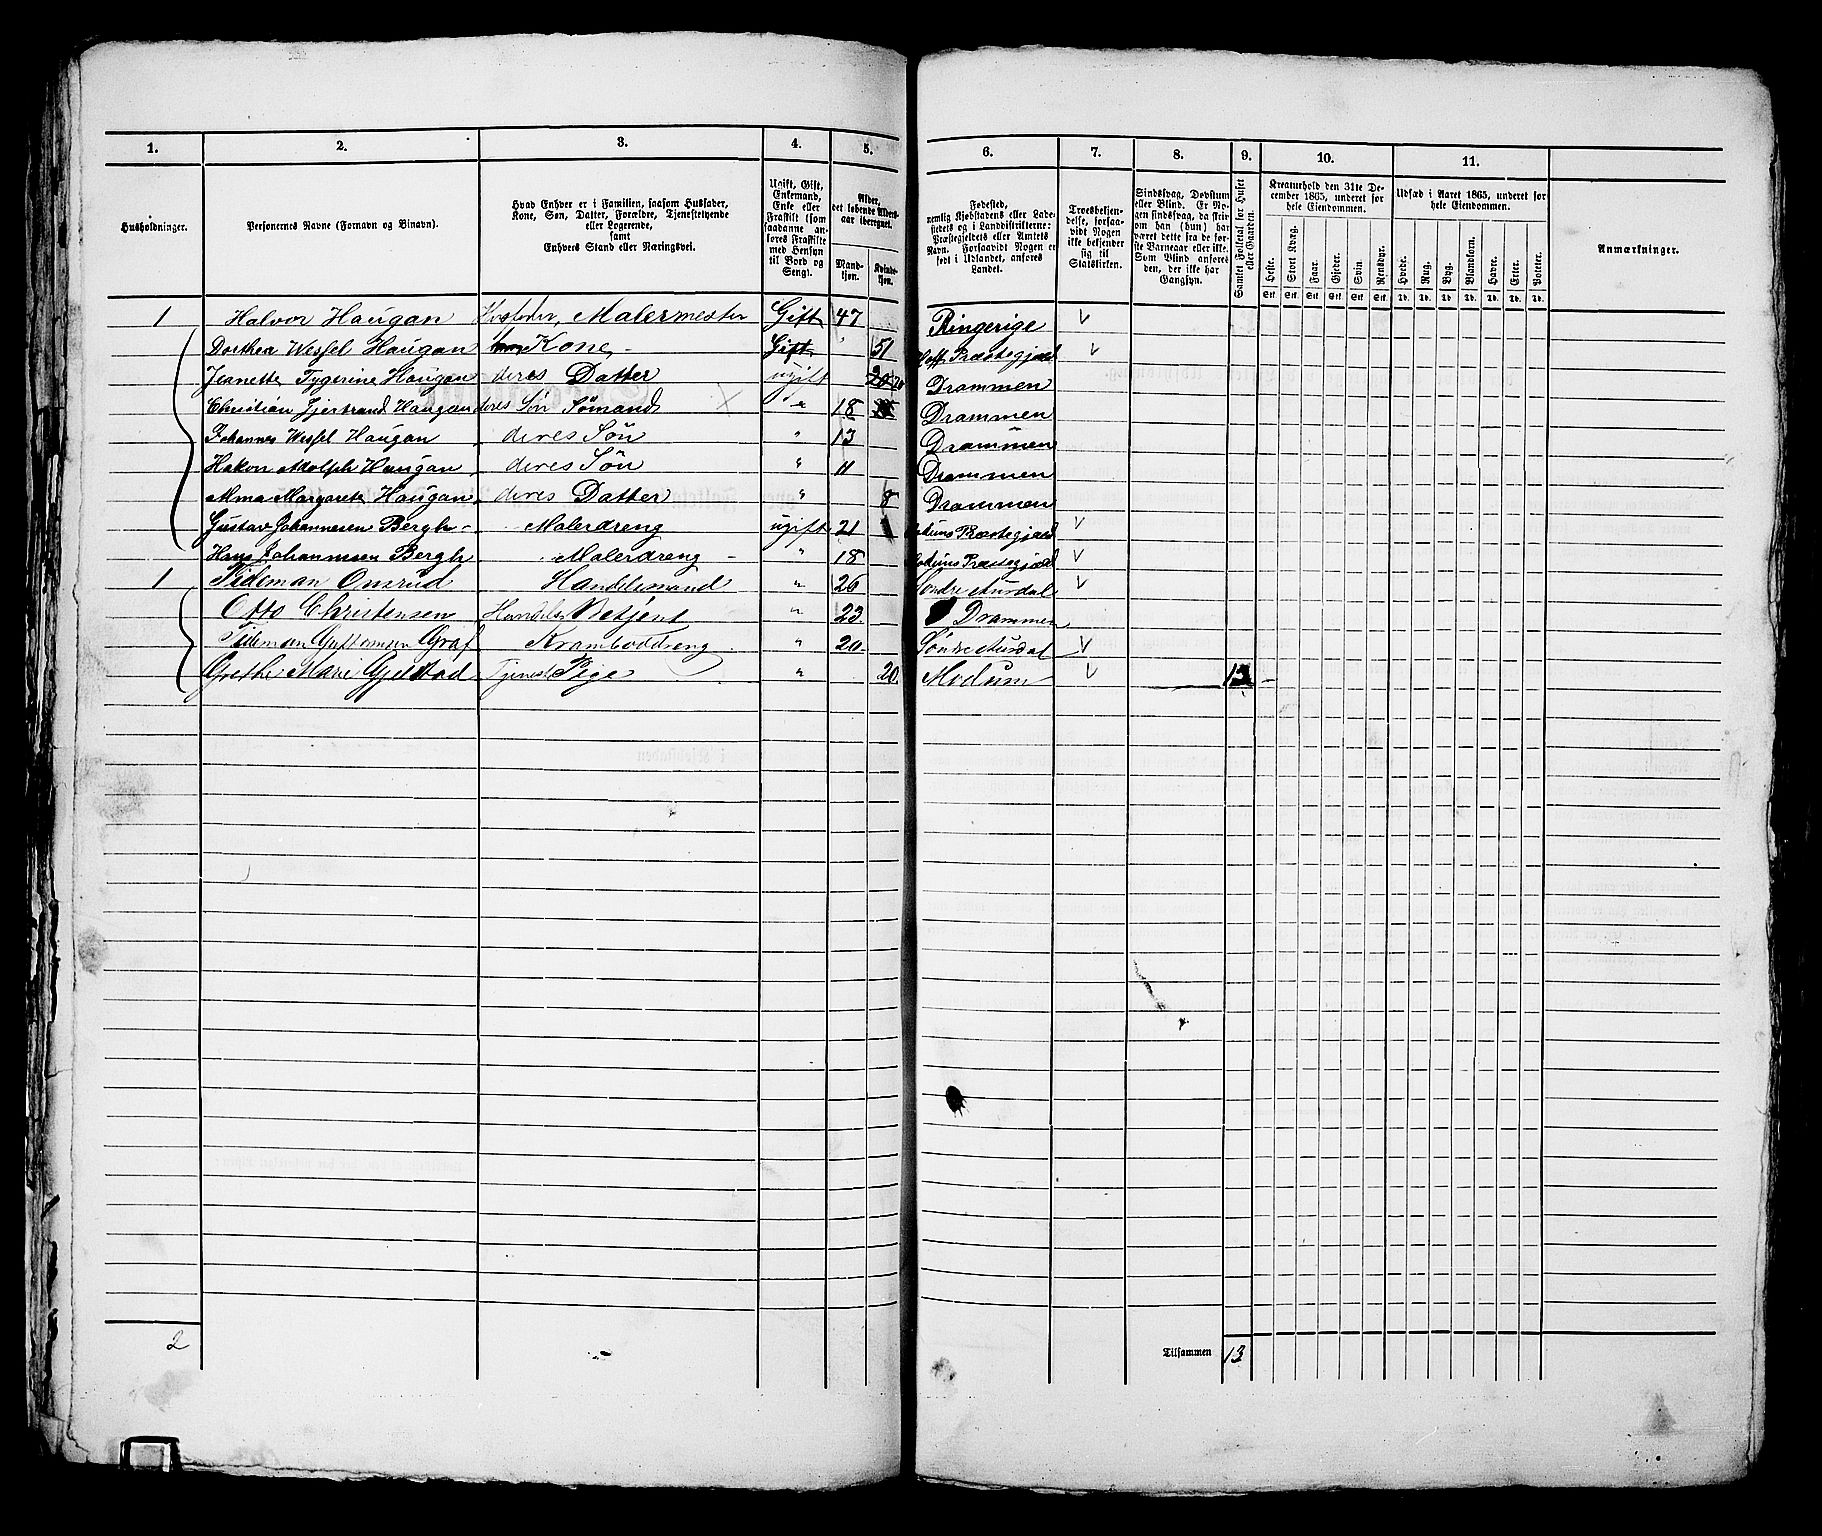 1. 2. 3. 4. 5. 6. 7. 8. 9. 10. 11.
Husholdninger.
Personernes Navne (Fornavn og Binavn).
Hvad Enhver er i Familien, saasom Husfader,
Kone, Søn, Datter, Forældre, Tjenestetyende
eller Logerende,
samt
Enhvers Stand eller Næringsvei.
Ugift, Gift,
Enkemand,
Enke eller
Fraskilt (som
saadanne an-
føres Fraskilte
med Hensyn
til Bord og
Seng).
Alder,
det løbende Alders-
aar iberegnet.
Mand-
kjøn.
Kvinde-
kjøn.
Fødested,
nemlig Kjøbstadens eller Lade-
stedets og i Landdistrikterne:
Præstegjeldets eller Amtets
Navn. Forsaavidt Nogen er
født i Udlandet, anføres
Landet.
Troesbekjen-
delse, forsaa-
vidt Nogen
ikke bekjender
sig til
Statskirken.
Sindssvag, Døvstum
eller Blind. Er No-
gen sindssvag, da skriv
om han (hun) har
været dette fra de før-
ste Barneaar eller ikke.
Som Blind anføres
den, der ikke har
Gangsyn.
Samlet Folketal for Huset
eller Gaarden.
Kreaturhold den 31te De-
cember 1865, underet for
hele Eiendommen.
Heste. Stort Kvæg. Faar. Gjeder. Svin. Rensdyr.
Stk. Stk. Stk. Stk. Stk. Stk.
Udsæd i Aaret 1865, underet for
hele Eiendommen.
Hvede. Rug. Byg. Blandkorn. Havre. Erter. Poteter.
Td. Td. Td. Td. Td. Td. Td.
Anmærkninger.
1 Halvor Haugan Husfader, Malermester Gift 47 Ringerige V
Dorthea Wessel Haugan Kone Gift 51 Hoff Præstegjæld V
Jeanette Tygerine Haugan deres Datter ugift 20 20 Drammen
Christian Hjertrand Haugan deres Søn Sømand X 18 Drammen
Johannes Wessel Haugan deres Søn " 13 Drammen
Hakon Adolph Haugan deres Søn " 11 Drammen
Alma Margarete Haugan deres Datter " 8 Drammen
Gustav Johannesen Bergh Malerdreng ugift 21 Modums Præstegjæld V
Hans Johannesen Bergh Malerdreng " 18 Modums Præstegjæld V
1 Tideman Omsrud Handelsmand " 26 Søndre Aurdal V
Otto Christensen Handels Betjent " 23 Drammen
Tideman Graf Kramboddreng " 20 Søndre Aurdal V
Grethe Marie Gjelstad Tjenest Pige " 20 Modum V 13
2 Tilsammen 13